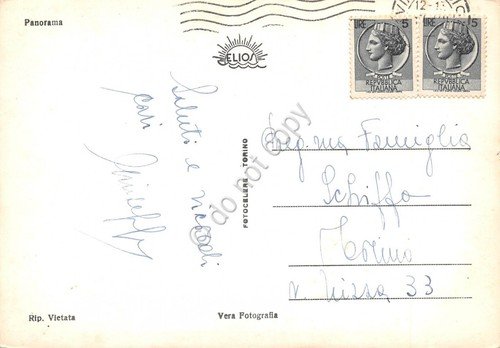 Panorama
ELIOS
12-1
LIRE 5
REPVBBLICA
ITALIANA
LIRE 5
REPVBBLICA
ITALIANA
Saluti e ricordi
cari
Giuseppe
FOTOCELERE TORINO
Egr. ma Famiglia
Schiffo
Torino
v Nizza 33
Rip. Vietata
Vera Fotografia
do not copy